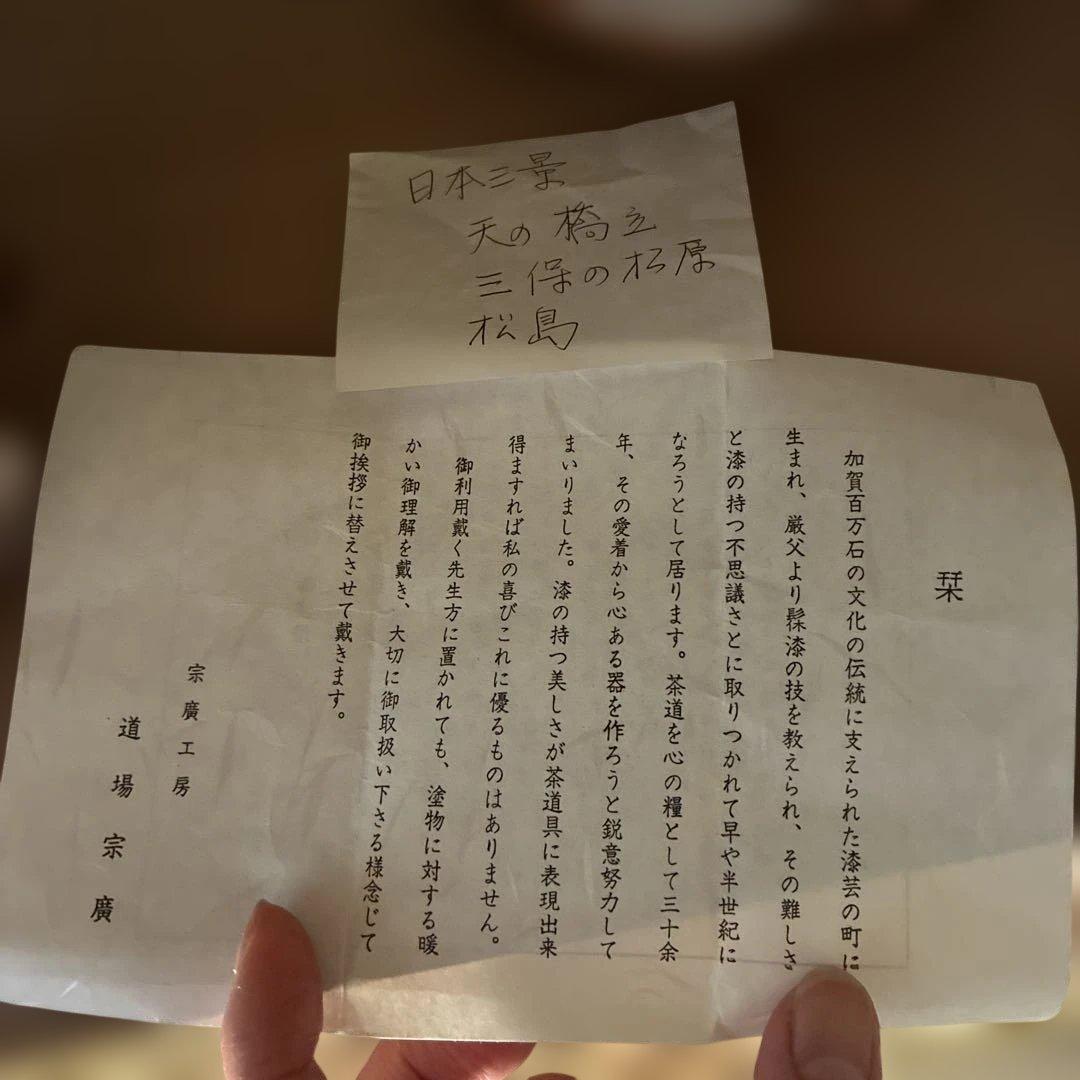 日本三景
天の橋立
三保の松原
松島
栞
加賀百万石の文化の伝統に支えられた漆芸の町に
生まれ、厳父より髹漆の技を教えられ、その難しさ
と漆の持つ不思議さとに取りつかれて早や半世紀に
なろうとして居ります。茶道を心の糧として三十余
年、その愛着から心ある器を作ろうと鋭意努力して
まいりました。漆の持つ美しさが茶道具に表現出来
得ますれば私の喜びこれに優るものはありません。
御利用戴く先生方に置かれても、塗物に対する暖
かい御理解を戴き、大切に御取扱い下さる様念じて
御挨拶に替えさせて戴きます。
宗廣工房
道場宗廣